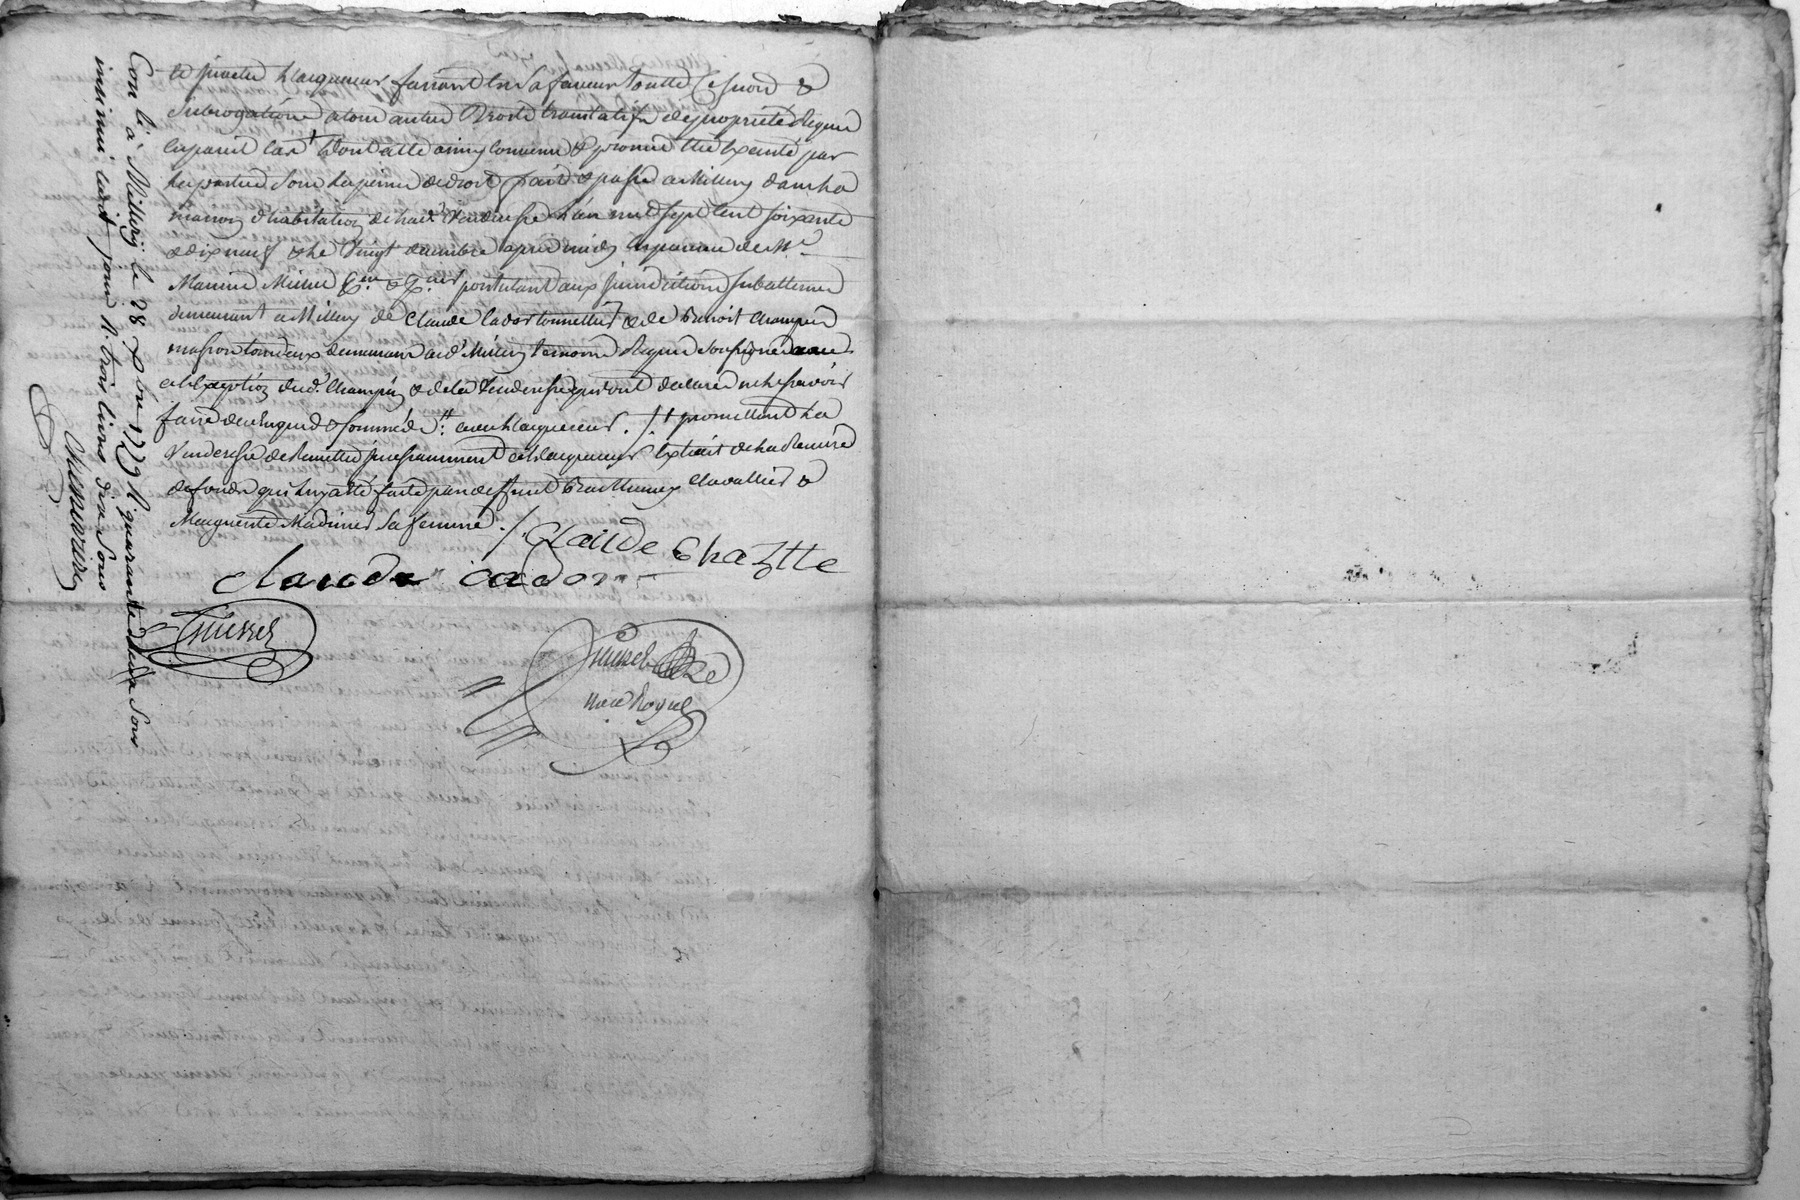 et   l'acquereur faisant en sa faveur toutte cession &
subrogation a tous autres droits translatifs de propriété Requis
en pareil cas dont a été ainsy convenu & promis être executé par
les parties sous les peines de droit fait & passé a Millery dans la
maison d'habitation de la de. Venderesse L'an mil sept cent soixante
& dix neuf & le vingt decembre apres midy en presence de Me.
  postulant aux jurisdictions subalternes
demeurant a Millery de Claude Cador tonnellier & de Benoit Champin
masson tous deux demeurant aud. Millery temoins Requis soussignés avec
a l'exception dud. Champin & de la Venderesse qui ont declaré ne le savoir
faire de ce Enquis & sommés avec l'acquereur ./. promettant la
Venderesse de Remettre incessamment a l'acquereur Extrait de la Remise
de fonds qui luy a été faite par deffunt Barthelemy Chavallier &
Marguerite   sa femme ./.
Claude Chaztte
claude cador

 
nore Royal
Con lé à Millery le 28 Xbre 1779 R quarante deux sous
insinué ledit jour R. trois livres dix sous